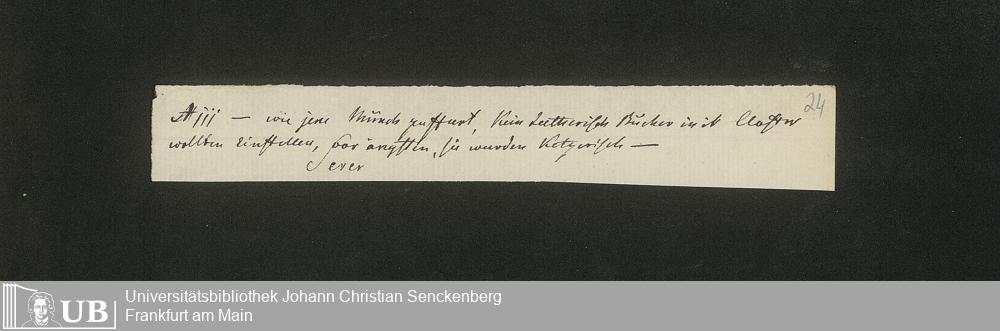 24
Aiij — wie jene Münch zu Franckfurt, kein Lutherisch Bücher in's Closter
wollten einstellen, vor ängsten, sie wurden Ketzerisch —
UB
Universitätsbibliothek Johann Christian Senckenberg
Frankfurt am Main